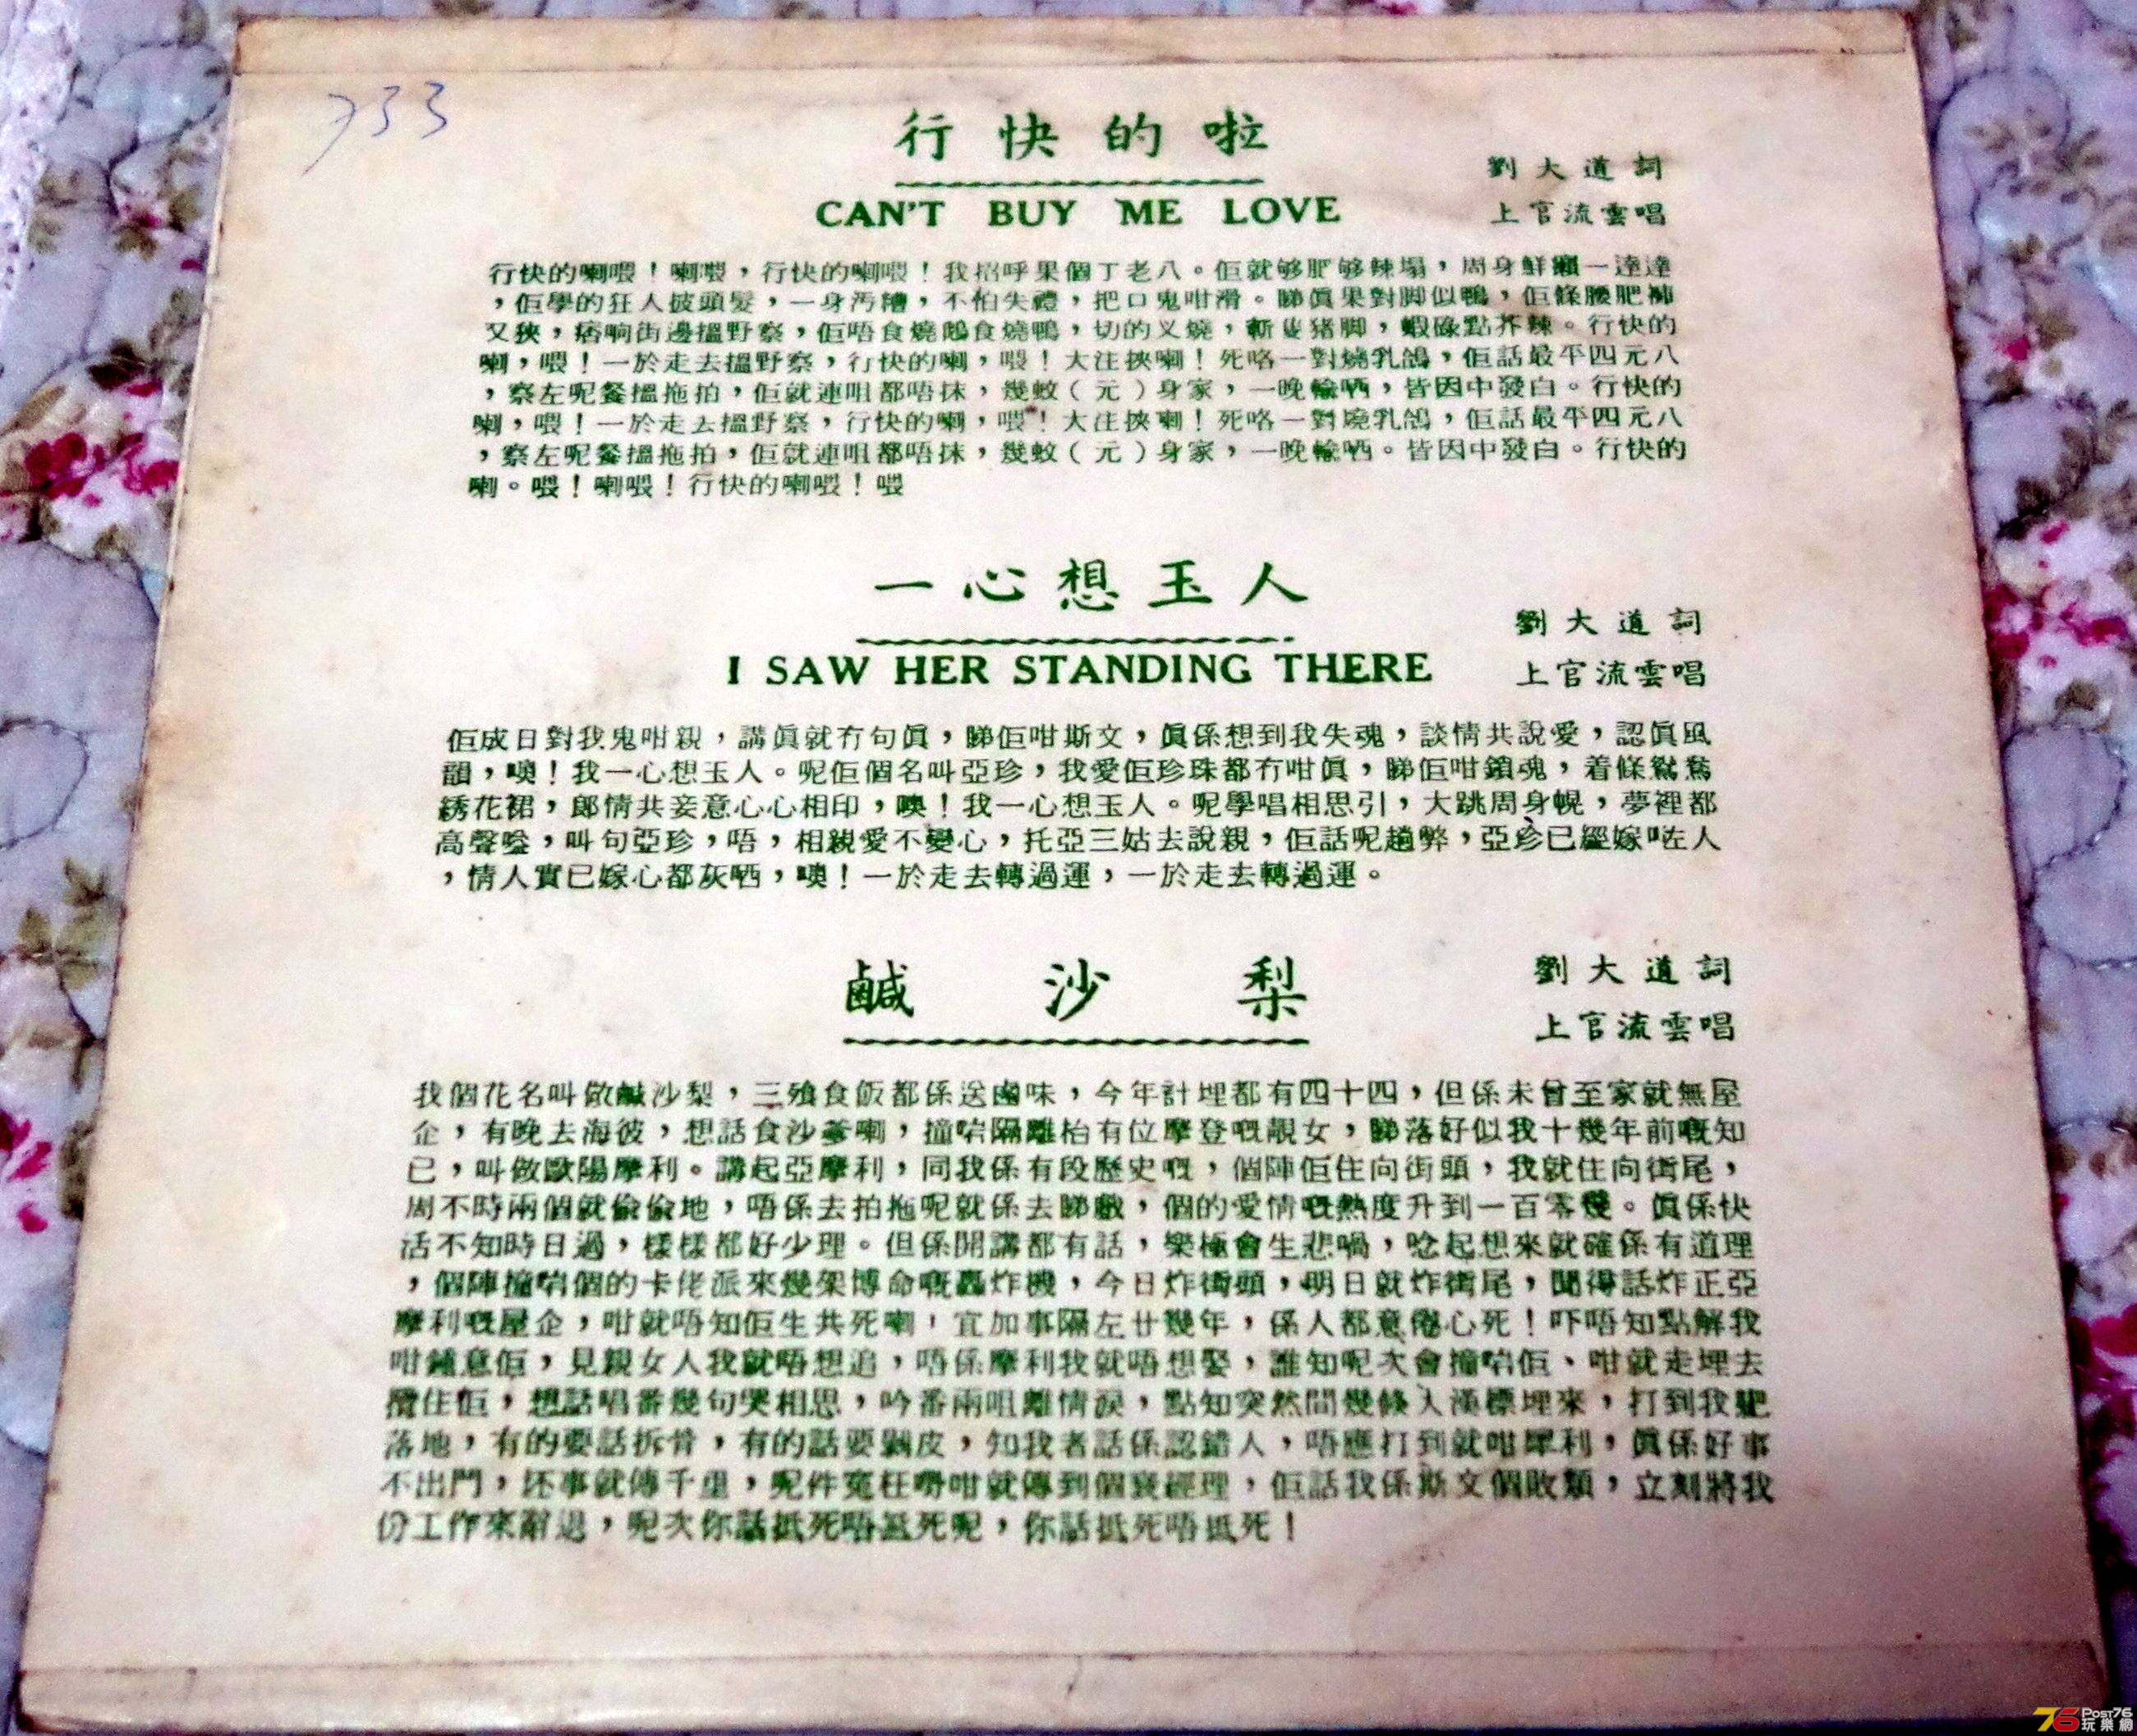 733
行快的啦
劉大道詞
CAN'T BUY ME LOVE
上官流雲唱
行快的喇喂！喇喂，行快的喇喂！我招呼果個丁老八。佢就够肥够辣塌，周身鮮癩一達達
，佢學的狂人披頭髮，一身汚糟，不怕失禮，把口鬼咁滑。睇眞果對脚似鴨，佢條腰肥褲
又狹，痞响街邊搵野察，佢唔食燒鵝食燒鴨，切的义燒，斬隻猪脚，蝦碌點芥辣。行快的
喇，喂！一於走去搵野察，行快的喇，喂！大注挾喇！死咯一對燒乳鴿，佢話最平四元八
，察左呢餐搵拖拍，佢就連咀都唔抹，幾蚊（元）身家，一晚輸晒，皆因中發白。行快的
喇，喂！一於走去搵野察，行快的喇，喂！大注挾喇！死咯一對燒乳鴿，佢話最平四元八
，察左呢餐搵拖拍，佢就連咀都唔抹，幾蚊（元）身家，一晚輸晒。皆因中發白。行快的
喇。喂！喇喂！行快的喇喂！喂
一心想玉人
劉大道詞
I SAW HER STANDING THERE
上官流雲唱
佢成日對我鬼咁親，講眞就冇句眞，睇佢咁斯文，眞係想到我失魂，談情共說愛，認眞風
韻，噢！我一心想玉人。呢佢個名叫亞珍，我愛佢珍珠都冇咁眞，睇佢咁鎖魂，着條鴛鴦
綉花裙，郎情共妾意心心相印，噢！我一心想玉人。呢學唱相思引，大跳周身幌，夢裡都
高聲嗌，叫句亞珍，唔，相親愛不變心，托亞三姑去說親，佢話呢趟弊，亞珍已經嫁咗人
，情人實已嫁心都灰晒，噢！一於走去轉過運，一於走去轉過運。
鹹沙梨
劉大道詞
上官流雲唱
我個花名叫做鹹沙梨，三飱食飯都係送鹵味，今年計埋都有四十四，但係未曾至家就無屋
企，有晚去海彼，想話食沙爹喇，撞啱隔離枱有位摩登嘅靚女，睇落好似我十幾年前嘅知
已，叫做歐陽摩利。講起亞摩利，同我係有段歷史嘅，個陣佢住向街頭，我就住向街尾，
周不時兩個就偷偷地，唔係去拍拖呢就係去睇戲，個的愛情嘅熱度升到一百零幾。眞係快
活不知時日過，樣樣都好少理。但係開講都有話，樂極會生悲喎，唸起想來就確係有道理
，個陣撞啱個的卡佬派來幾架博命嘅轟炸機，今日炸街頭，明日就炸街尾，聞得話炸正亞
摩利嘅屋企，咁就唔知佢生共死喇，宜加事隔左廿幾年，係人都意倦心死！吓唔知點解我
咁鍾意佢，見親女人我就唔想追，唔係摩利我就唔想娶，誰知呢次會撞啱佢、咁就走埋去
攬住佢，想話唱番幾句哭相思，吟番兩咀離情淚，點知突然間幾條大漢標埋來，打到我
落地，有的要話拆骨，有的話要剝皮，知我者話係認錯人，唔應打到就咁犀利，眞係好事
不出門，坏事就傳千里，呢件寃枉嘢咁就傳到個衰經理，佢話我係斯文個敗類，立刻將我
份工作來辭退，呢次你話抵死唔抵死呢，你話抵死唔抵死！
76 Post76
玩樂網